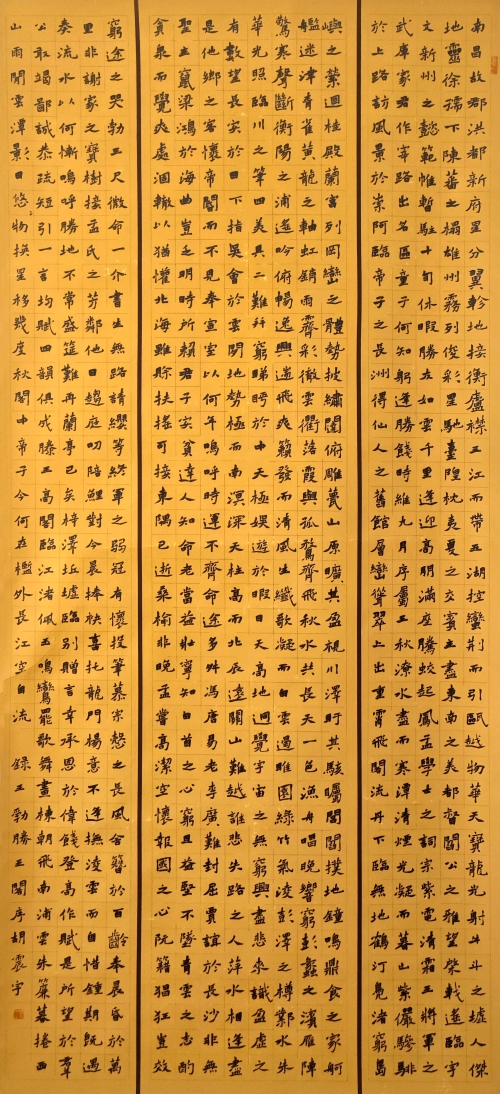 南昌故郡洪都新府星分翼軫地接衡廬襟三江而帶五湖控蠻荊而引甌越物華天寶龍光射牛斗之墟人傑
地靈徐孺下陳蕃之榻雄州霧列俊彩星馳臺隍枕夷夏之交賓主盡東南之美都督閻公之雅望棨戟遙臨宇
文新州之懿範帷暫駐十旬休暇勝友如雲千里逢迎高朋滿座騰蛟起鳳孟學士之詞宗紫電清霜王將軍之
武庫家君作宰路出名區童子何知躬逢勝餞時維九月序屬三秋潦水盡而寒潭清煙光凝而暮山紫儼驂騑
於上路訪風景於崇阿臨帝子之長洲得仙人之舊館層巒聳翠上出重霄飛閣流丹下臨無地鶴汀鳧渚窮島
嶼之縈迴桂殿蘭宮列岡巒之體勢披繡闥俯雕甍山原曠其盈視川澤盱其駭矚閭閻撲地鐘鳴鼎食之家舸
艦迷津青雀黃龍之軸虹銷雨霽彩徹雲衢落霞與孤鶩齊飛秋水共長天一色漁舟唱晚響窮彭蠡之濱雁陣
驚寒聲斷衡陽之浦遙吟俯暢逸興遄飛爽籟發而清風生纖歌凝而白雲遏睢園綠竹氣淩彭澤之樽鄴水朱
華光照臨川之筆四美具二難并窮睇眄於中天極娛遊於暇日天高地迥覺宇宙之無窮興盡悲來識盈虛之
有數望長安於日下指吳會於雲間地勢極而南溟深天柱高而北辰遠關山難越誰悲失路之人萍水相逢盡
是他鄉之客懷帝閽而不見奉宣室以何年嗚呼時運不齊命途多舛馮唐易老李廣難封屈賈誼於長沙非無
聖主竄梁鴻於海曲豈乏明時所賴君子安貧達人知命老當益壯寧知白首之心窮且益堅不墜青雲之志酌
貪泉而覺爽處涸轍以猶懽北海雖賒扶搖可接東隅已逝桑榆非晚孟嘗高潔空懷報國之心阮籍猖狂豈效
窮途之哭勃三尺微命一介書生無路請纓等終軍之弱冠有懷投筆慕宗愨之長風舍簪於百齡奉晨昏於萬
里非謝家之寶樹接孟氏之芳鄰他日趨庭叨陪鯉對今晨捧袂喜托龍門楊意不逢撫淩雲而自惜鍾期既遇
奏流水以何慚嗚呼勝地不常盛筵難再蘭亭已矣梓澤丘墟臨別贈言幸承恩於偉餞登高作賦是所望於羣
公敢竭鄙誠恭疏短引一言均賦四韻俱成滕王高閣臨江渚佩玉鳴鸞罷歌舞畫棟朝飛南浦雲朱簾暮捲西
山雨閑雲潭影日悠〻物換星移幾度秋閣中帝子今何在檻外長江空自流 錄王勃勝王閣序胡震宇